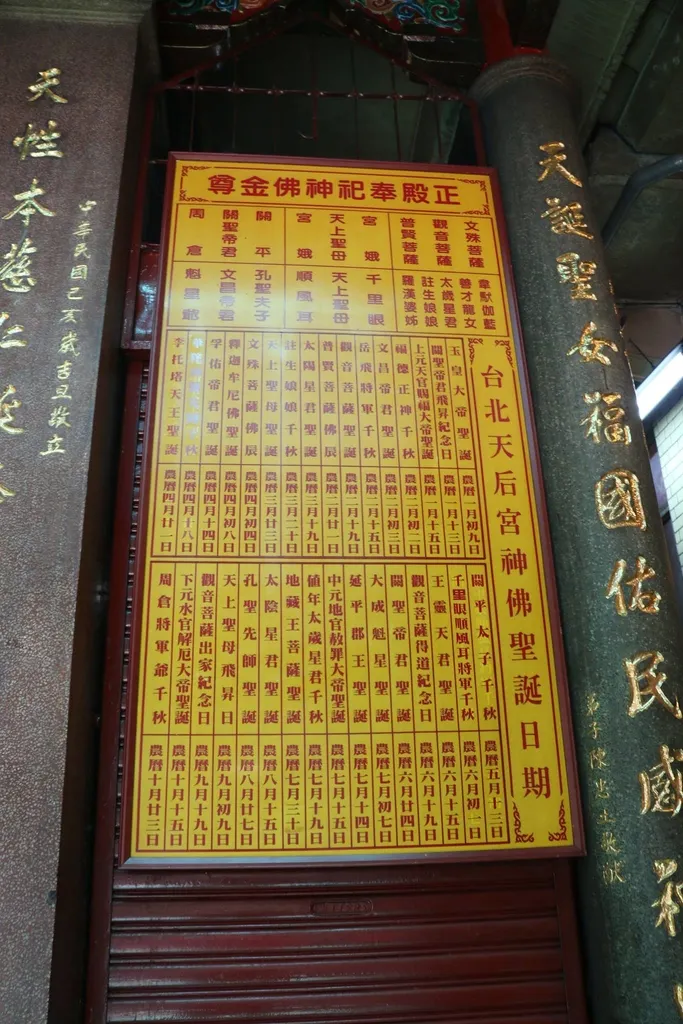 正殿奉祀神佛金尊
文殊菩薩
觀音菩薩
普賢菩薩
宮娥
天上聖母
宮娥
關平
關聖帝君
周倉
韋馱伽藍
善才龍女
太歲星君
註生娘娘
羅漢婆姐
千里眼
天上聖母
順風耳
孔聖夫子
文昌帝君
魁星爺
台北天后宮神佛聖誕日期
玉皇大帝聖誕 農曆一月初九日
關聖帝君飛昇紀念日 農曆一月十三日
上元天官賜福大帝聖誕 農曆一月十五日
福德正神千秋 農曆二月初二日
文昌帝君聖誕 農曆二月初三日
岳飛將軍千秋 農曆二月十五日
觀音菩薩聖誕 農曆二月十九日
普賢菩薩佛辰 農曆二月廿一日
太陽星君聖誕 農曆三月十九日
註生娘娘千秋 農曆三月二十日
天上聖母聖誕 農曆三月廿三日
文殊菩薩佛辰 農曆四月初四日
釋迦牟尼佛聖誕 農曆四月初八日
孚佑帝君聖誕 農曆四月十四日
千秋 農曆四月十八日
李托塔天王聖誕 農曆四月廿一日
關平太子千秋 農曆五月十三日
千里眼順風耳將軍千秋 農曆六月初一日
王靈天君聖誕 農曆六月十五日
觀音菩薩得道紀念日 農曆六月十九日
關聖帝君聖誕 農曆六月廿四日
大成魁星聖誕 農曆七月初七日
延平郡王聖誕 農曆七月十四日
中元地官赦罪大帝聖誕 農曆七月十五日
値年太歲星君千秋 農曆七月十九日
地藏王菩薩聖誕 農曆七月三十日
太陰星君聖誕 農曆八月十五日
孔聖先師聖誕 農曆八月廿七日
天上聖母飛昇日 農曆九月初九日
觀音菩薩出家紀念日 農曆九月十九日
下元水官解厄大帝聖誕 農曆十月十五日
周倉將軍爺千秋 農曆十月廿三日
天誕聖女福國佑民威
弟子陳
天性本慈仁
中華民國己亥歲吉旦敬立